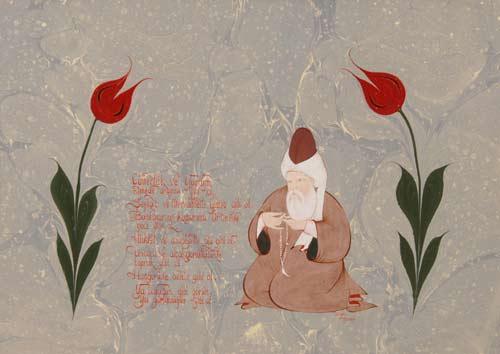 Cömertlik ve yardım
etmede akarsu gibi ol
Şefkat ve merhamette güneş gibi ol
Başkalarının kusurunu örtmede
gece gibi ol
Hiddet ve asabiyette ölü gibi ol
tevazu ve alçakgönüllülükte
toprak gibi ol
Hoşgörüde deniz gibi ol
Ya olduğun gibi görün
Ya göründüğün gibi ol